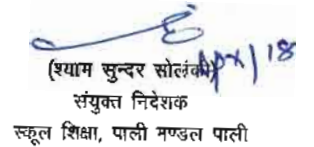 (श्याम सुन्दर सोलंकी)
संयुक्त निदेशक
स्कूल शिक्षा, पाली मण्डल पाली